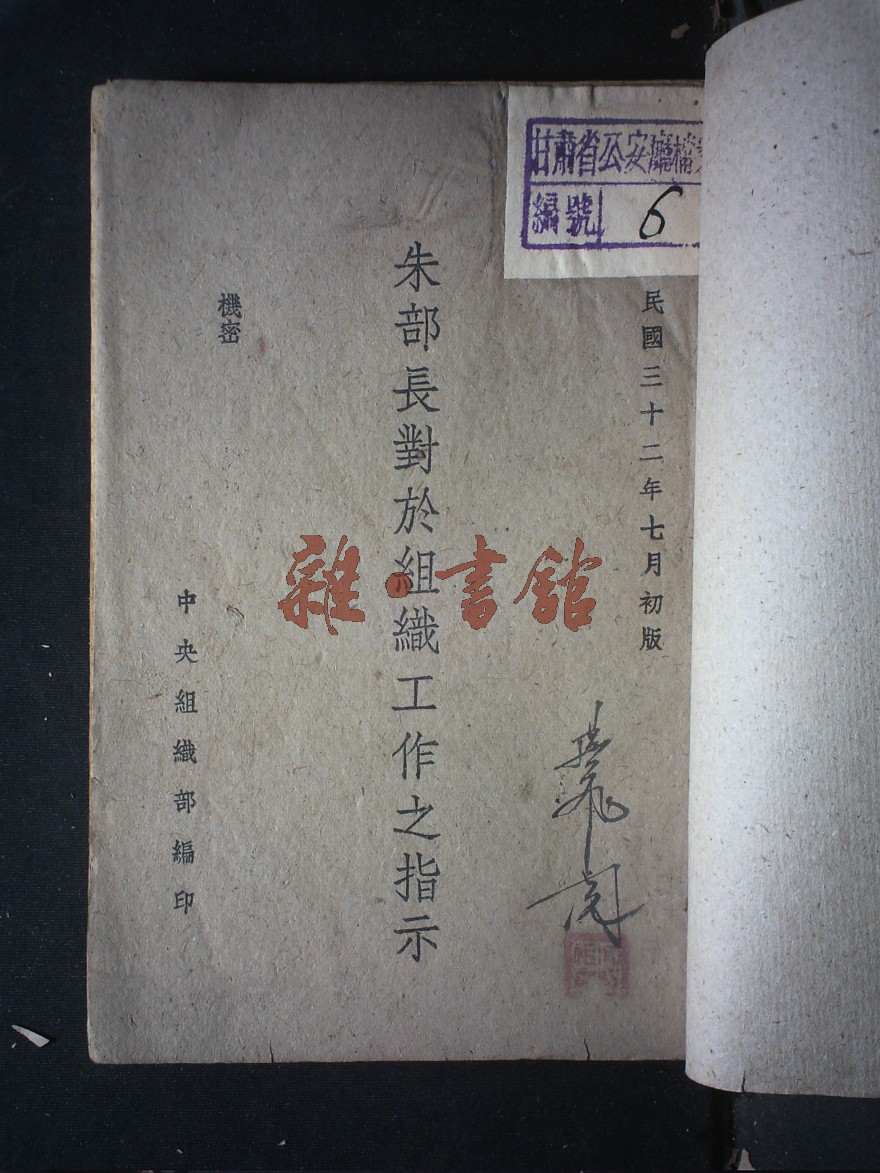 甘肅省公安廳檔
編號 6
民國三十二年七月初版
朱部長對於組織工作之指示
機密
中央組織部編印
雜·書館